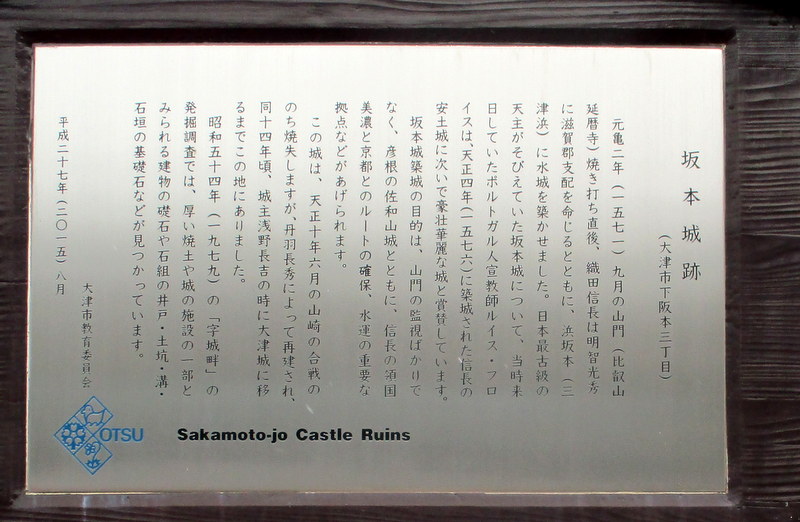 坂本城跡
（大津市下阪本三丁目）
元亀二年（一五七一）九月の山門（比叡山
延暦寺）焼き打ち直後、織田信長は明智光秀
に滋賀郡支配を命じるとともに、浜坂本（三
津浜）に水城を築かせました。日本最古級の
天主がそびえていた坂本城について、当時来
日していたポルトガル人宣教師ルイス・フロ
イスは、天正四年（一五七六）に築城された信長の
安土城に次いで豪壮華麗な城と賞賛しています。
坂本城築城の目的は、山門の監視ばかりで
なく、彦根の佐和山城とともに、信長の領国
美濃と京都とのルートの確保、水運の重要な
拠点などがあげられます。
この城は、天正十年六月の山崎の合戦の
のち焼失しますが、丹羽長秀によって再建され、
同十四年頃、城主浅野長吉の時に大津城に移
るまでこの地にありました。
昭和五十四年（一九七九）の「字城畔」の
発掘調査では、厚い焼土や城の施設の一部と
みられる建物の礎石や石組の井戸・土坑・溝・
石垣の基礎石などが見つかっています。
大津市教育委員会
平成二十七年（二〇一五）八月
OTSU
Sakamoto-jo Castle Ruins